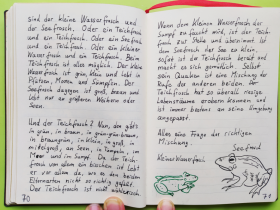 sind der kleine Wasserfrosch und
der Seefrosch. Oder ein Teichfrosch
und ein Teichfrosch. Oder ein Seefrosch
und ein Teichfrosch. Oder ein kleiner
Wasserfrosch und ein Teichfrosch. Beim
Teichfrosch ist alles möglich. Der kleine
Wasserfrosch ist grün, klein und lebt in
Pfützen, Mooren und Sümpfen. Der
Seefrosch dagegen ist groß, braun und
lebt nur an größeren Weihern oder
Seen.
Und der Teichfrosch? Nun, den gibt's
in grün, in braun, in grün-grün-braun,
in braungrün, in klein, in groß, in
mittelgroß, an Seen, in Tümpeln, im
Moor und im Sumpf. Da der Teich-
frosch von allem ein bisschen ist, lebt
er vor allem da, wo es den beiden
Elternarten nicht so richtig gefällt.
Der Teichfrosch ist nicht wählerisch.
70
Wenn dem kleinen Wasserfrosch der
Sumpf zu feucht wird, ist der Teich-
frosch zur Stelle und überall wo
dem Seefrosch der See zu klein,
sofort ist der Teichfrosch bereit und
macht es sich gemütlich. Selbst
sein Quaken ist eine Mischung der
Rufe der anderen beiden. Der
Teichfrosch hat so überall riesige
Lebensräume erobern können und
ist immer bestens an seine Umgebung
angepasst.
Alles eine Frage der richtigen
Mischung.
Seefrosch
Kleiner Wasserfrosch
71